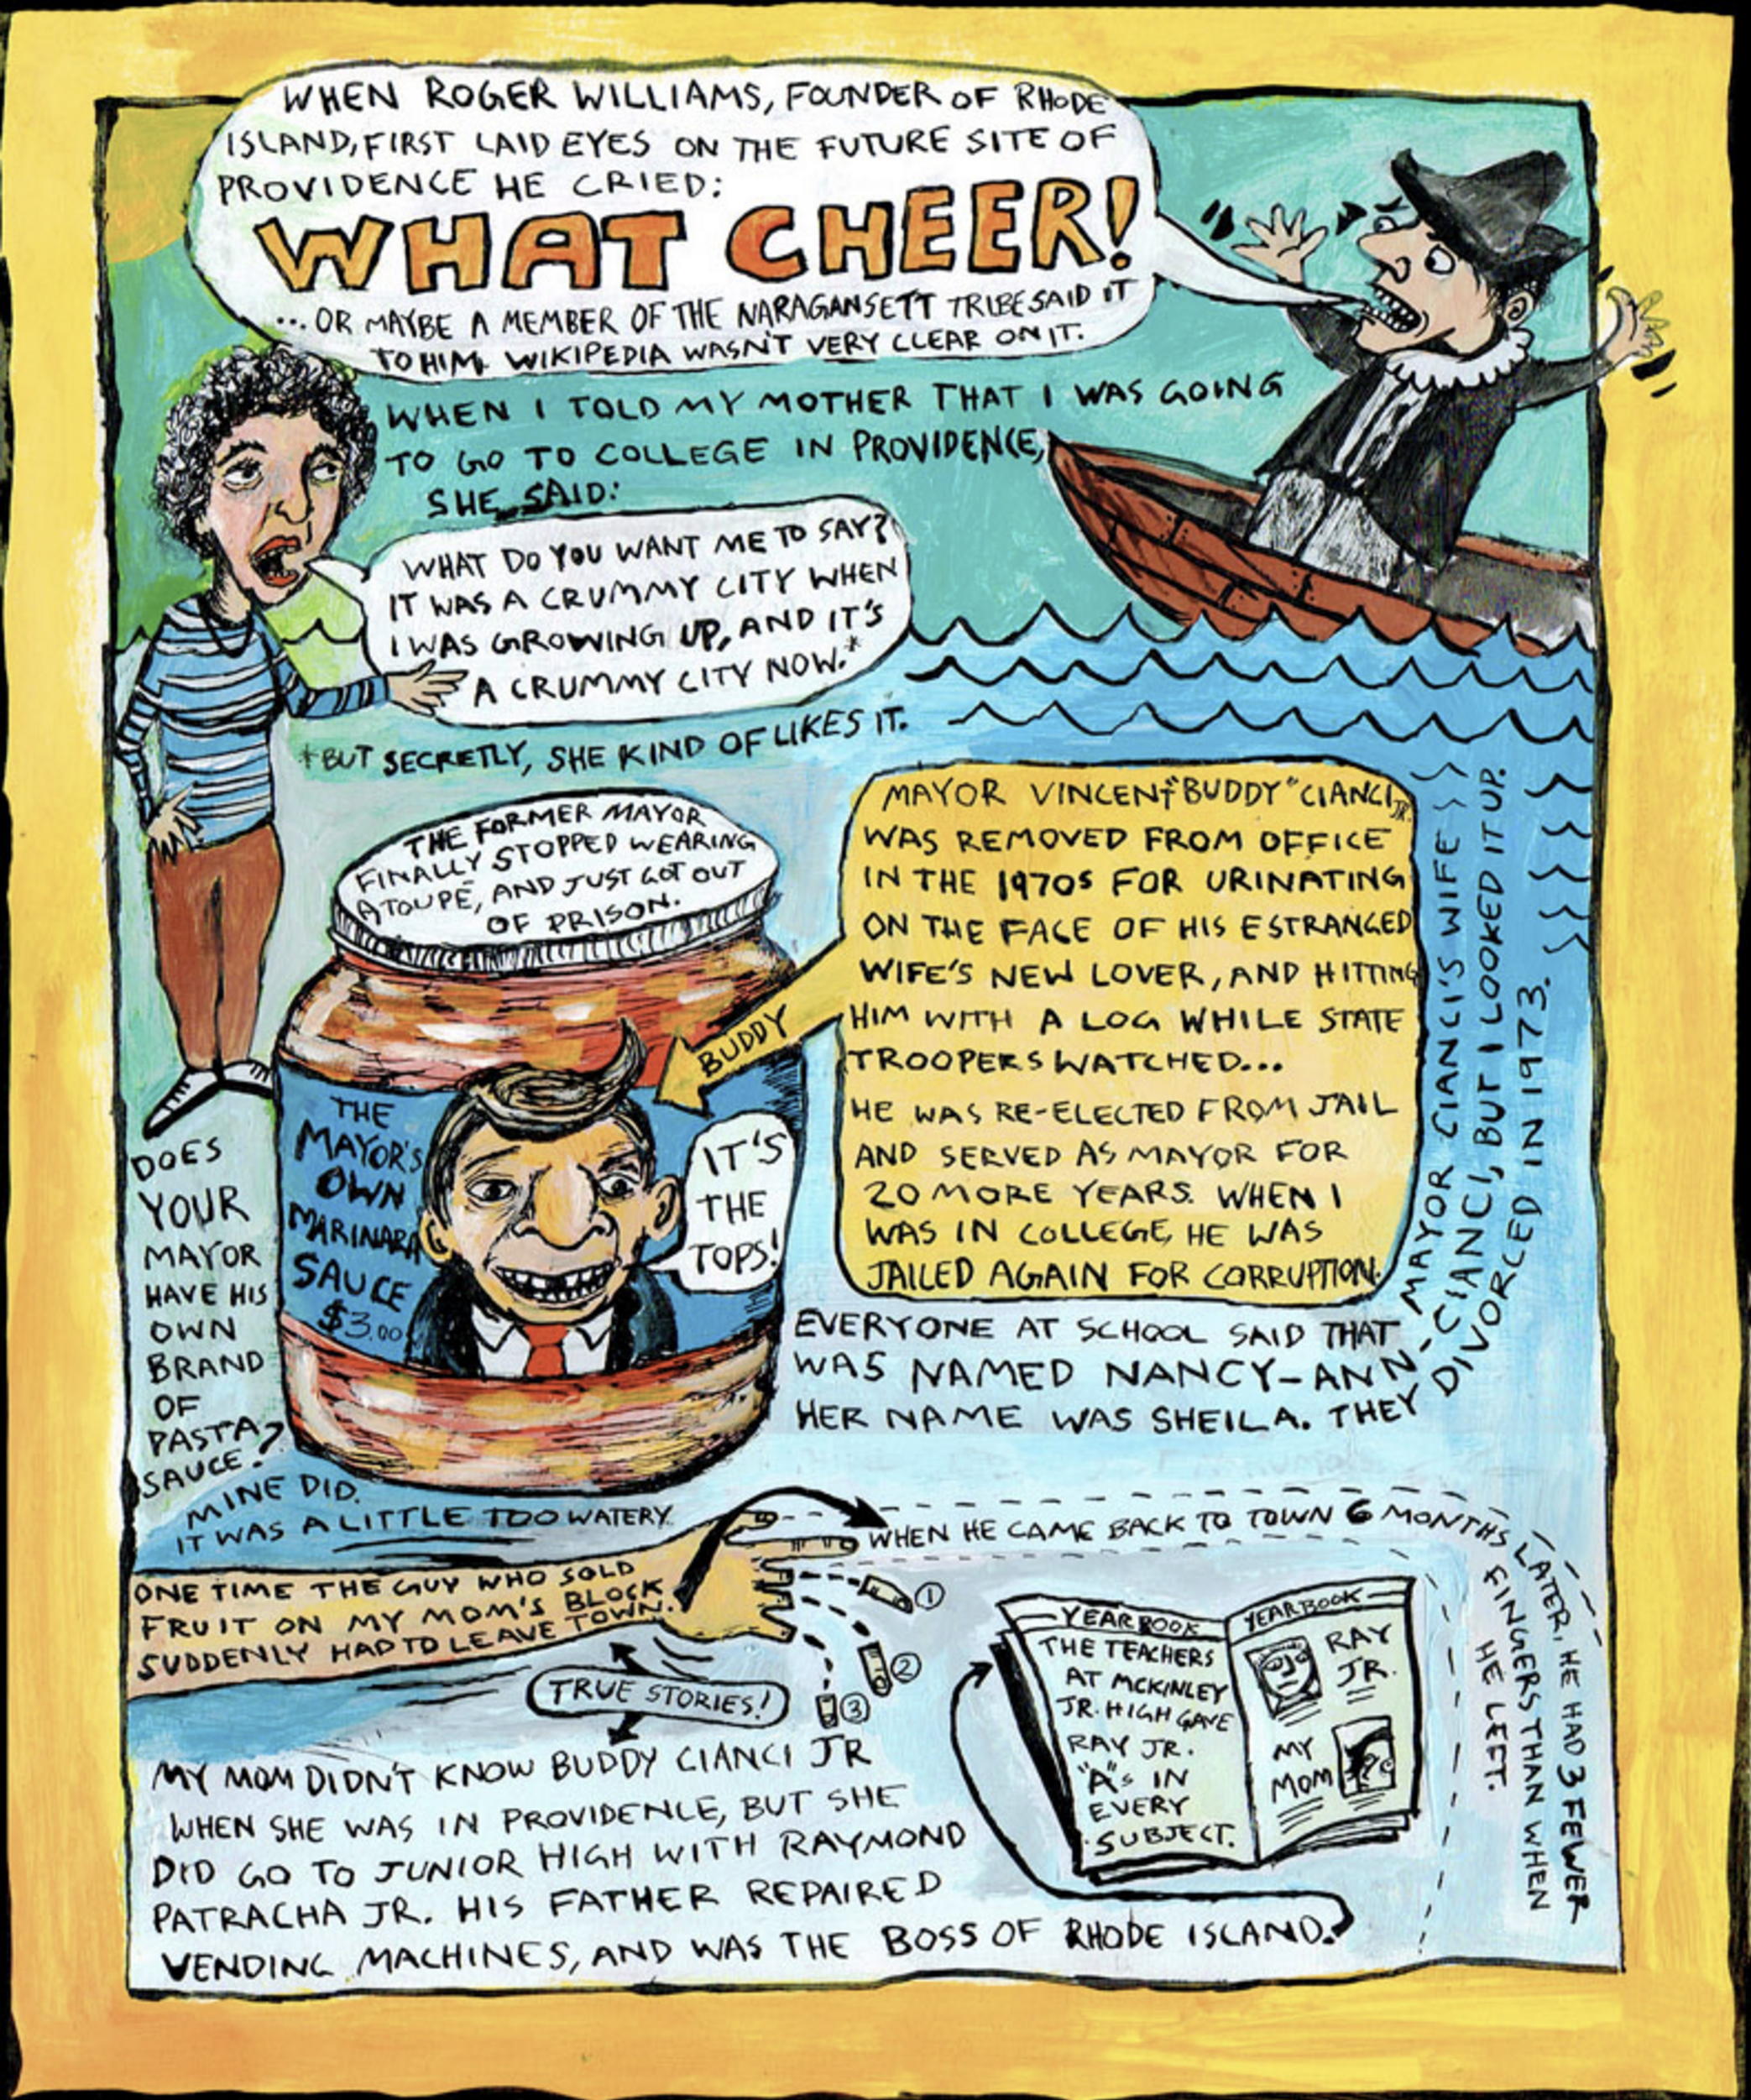 WHEN ROGER WILLIAMS, FOUNDER OF RHODE
ISLAND, FIRST LAID EYES ON THE FUTURE SITE OF
PROVIDENCE HE CRIED:
WHAT CHEER!
... OR MAYBE A MEMBER OF THE NARAGANSETT TRIBE SAID IT
TO HIM. WIKIPEDIA WASN'T VERY CLEAR ON IT.
WHEN I TOLD MY MOTHER THAT I WAS GOING
TO GO TO COLLEGE IN PROVIDENCE,
SHE SAID:
WHAT DO YOU WANT ME TO SAY?
IT WAS A CRUMMY CITY WHEN
I WAS GROWING UP, AND IT'S
A CRUMMY CITY NOW.*
*BUT SECRETLY, SHE KIND OF LIKES IT.
THE FORMER MAYOR
FINALLY STOPPED WEARING
A TOUPÉ, AND JUST GOT OUT
OF PRISON.
MAYOR VINCENT "BUDDY" CIANCI, JR.
WAS REMOVED FROM OFFICE
IN THE 1970S FOR URINATING
ON THE FACE OF HIS ESTRANGED
WIFE'S NEW LOVER, AND HITTING
HIM WITH A LOG WHILE STATE
TROOPERS WATCHED...
HE WAS RE-ELECTED FROM JAIL
AND SERVED AS MAYOR FOR
20 MORE YEARS. WHEN I
WAS IN COLLEGE, HE WAS
JAILED AGAIN FOR CORRUPTION.
BUDDY
THE
MAYOR'S
OWN
MARINARA
SAUCE
$3.00
IT'S
THE
TOPS!
DOES
YOUR
MAYOR
HAVE HIS
OWN
BRAND
OF
PASTA
SAUCE?
MINE DID.
IT WAS A LITTLE TOO WATERY.
EVERYONE AT SCHOOL SAID THAT MAYOR CIANCI'S WIFE
WAS NAMED NANCY-ANN-CIANCI, BUT I LOOKED IT UP.
HER NAME WAS SHEILA. THEY DIVORCED IN 1973.
ONE TIME THE GUY WHO SOLD
FRUIT ON MY MOM'S BLOCK
SUDDENLY HAD TO LEAVE TOWN.
WHEN HE CAME BACK TO TOWN 6 MONTHS LATER, HE HAD 3 FEWER
FINGERS THAN WHEN
HE LEFT.
1
2
3
TRUE STORIES!
MY MOM DIDN'T KNOW BUDDY CIANCI JR
WHEN SHE WAS IN PROVIDENCE, BUT SHE
DID GO TO JUNIOR HIGH WITH RAYMOND
PATRACHA JR. HIS FATHER REPAIRED
VENDING MACHINES, AND WAS THE BOSS OF RHODE ISLAND.
YEARBOOK
THE TEACHERS
AT MCKINLEY
JR. HIGH GAVE
RAY JR.
"A"s IN
EVERY
SUBJECT.
YEARBOOK
RAY
JR.
MY
MOM